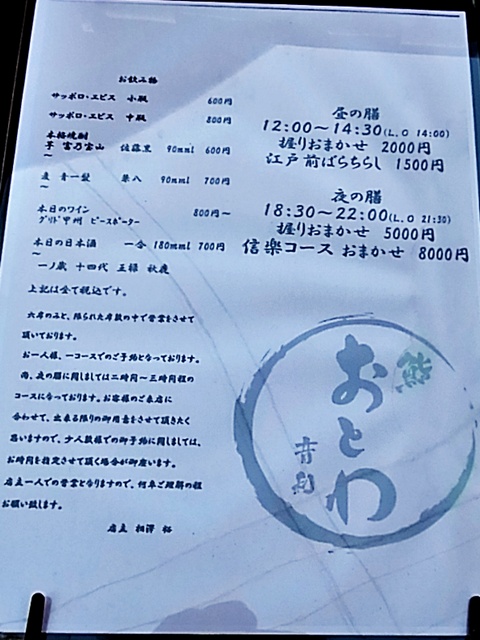 お飲み物
サッポロ・エビス 小瓶 600円
サッポロ・エビス 中瓶 800円
本格焼酎
芋 富乃宝山 佐藤黒 90mml 600円
～
麦 青一髪 兼八 90mml 700円
～
本日のワイン 800円～
グリド甲州 ピースポーター
本日の日本酒 一合 180mml 700円
～
一ノ蔵 十四代 王禄 秋鹿
上記は全て税込です。
六席のみと、限られた席数の中で営業をさせて
頂いております。
お一人様、一コースでのご予約となっております。
尚、夜の膳に関しましては二時間～三時間程の
コースになっております。お客様のご来店に
合わせて、出来る限りの御用意をさせて頂きたく
思いますので、少人数様での御予約に関しましては、
お時間を指定させて頂く場合が御座います。
店主一人での営業となりますので、何卒ご理解の程
お願い致します。
店主 相澤 裕
昼の膳
12:00～14:30(L.O 14:00)
握りおまかせ 2000円
江戸前ばらちらし 1500円
夜の膳
18:30～22:00(L.O 21:30)
握りおまかせ 5000円
信楽コース おまかせ 8000円
鮨
おとわ